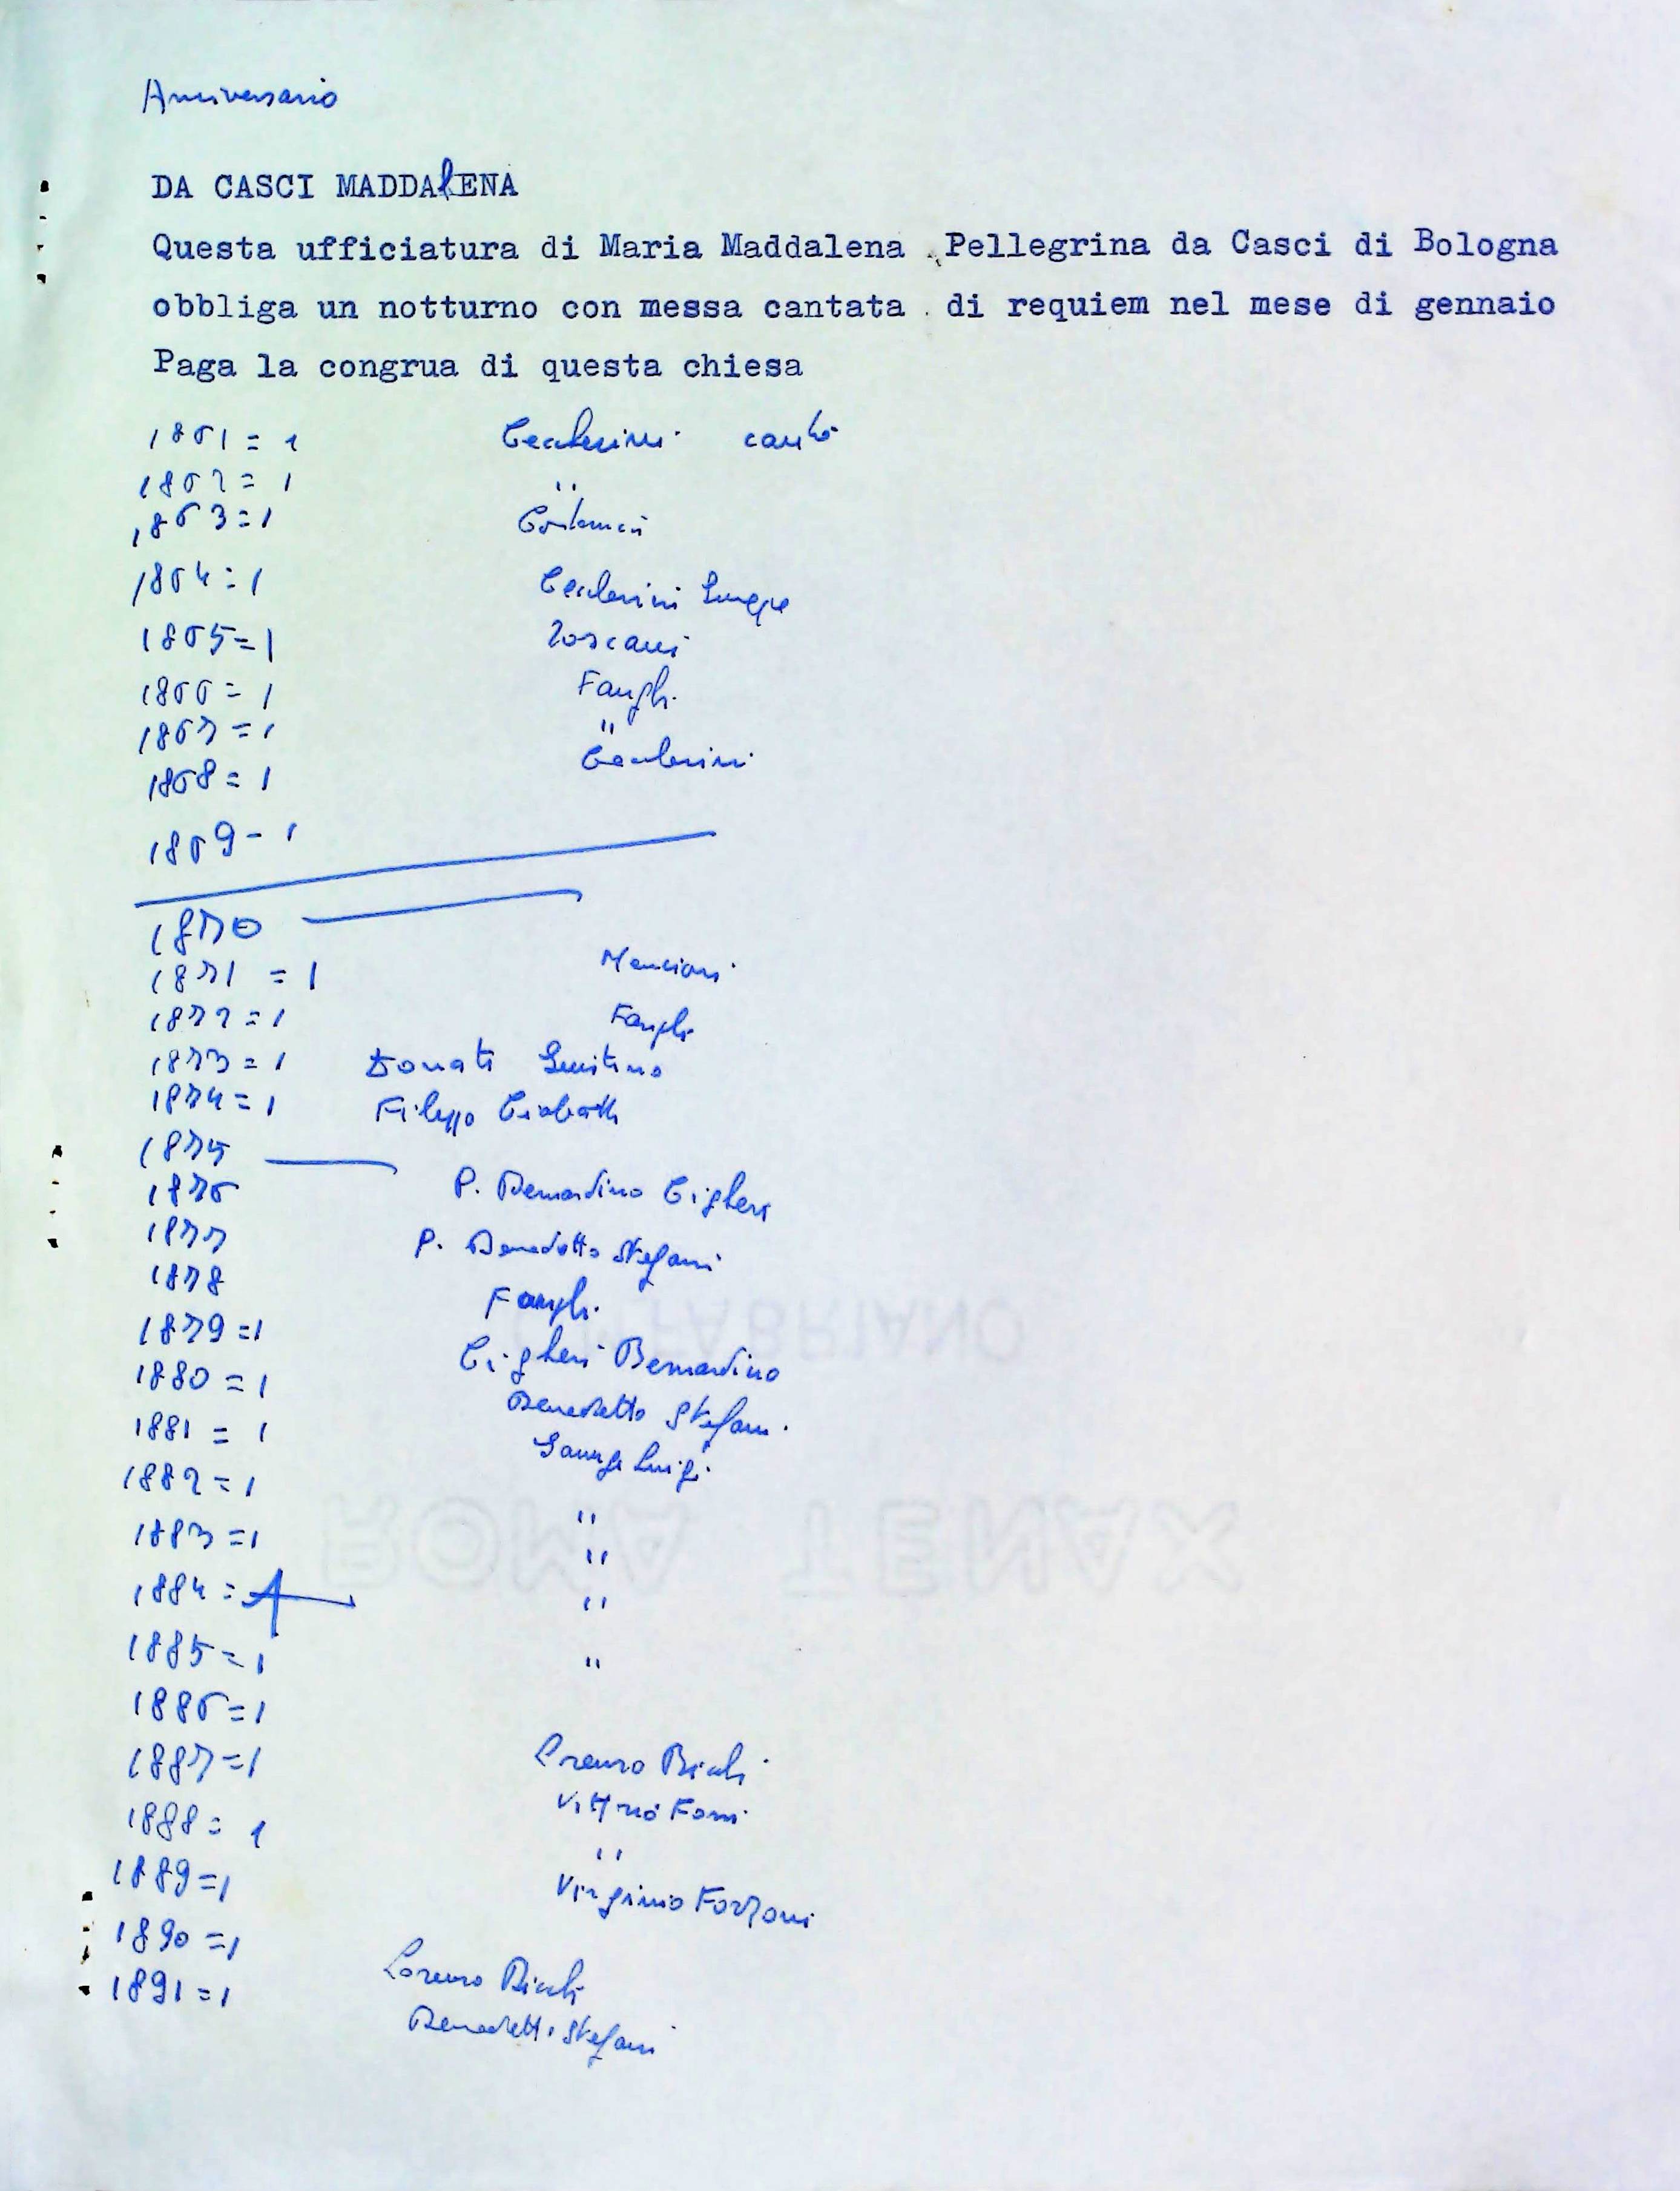 Anniversario
DA CASCI MADDAlENA
Questa ufficiatura di Maria Maddalena Pellegrina da Casci di Bologna
obbliga un notturno con messa cantata . di requiem nel mese di gennaio
Paga la congrua di questa chiesa
1861 = 1
1862 = 1 "
1863 = 1
1864 = 1
1865 = 1 Toscani
1866 = 1 Fanghi
1867 = 1 "
1868 = 1
1869 - 1
1870
1871 = 1 Menciassi
1872 = 1 Fanghi
1873 = 1 Donati
1874 = 1 Filippo
1875
1876 P. Bernardino Cigheri
1877 P. Benedetto Stefani
1878 Fanghi
1879 = 1 Cigheri Bernardino
1880 = 1 Benedetto Stefani
1881 = 1 Luigi
1882 = 1 "
1883 = 1 "
1884 = 1 "
1885 = 1 "
1886 = 1
1887 = 1 Lorenzo
1888 = 1 Vittorio
1889 = 1 "
1890 = 1 Virginio Forzoni
1891 = 1 Lorenzo
Benedetto Stefani
FABRIANO
ROMA TENAX